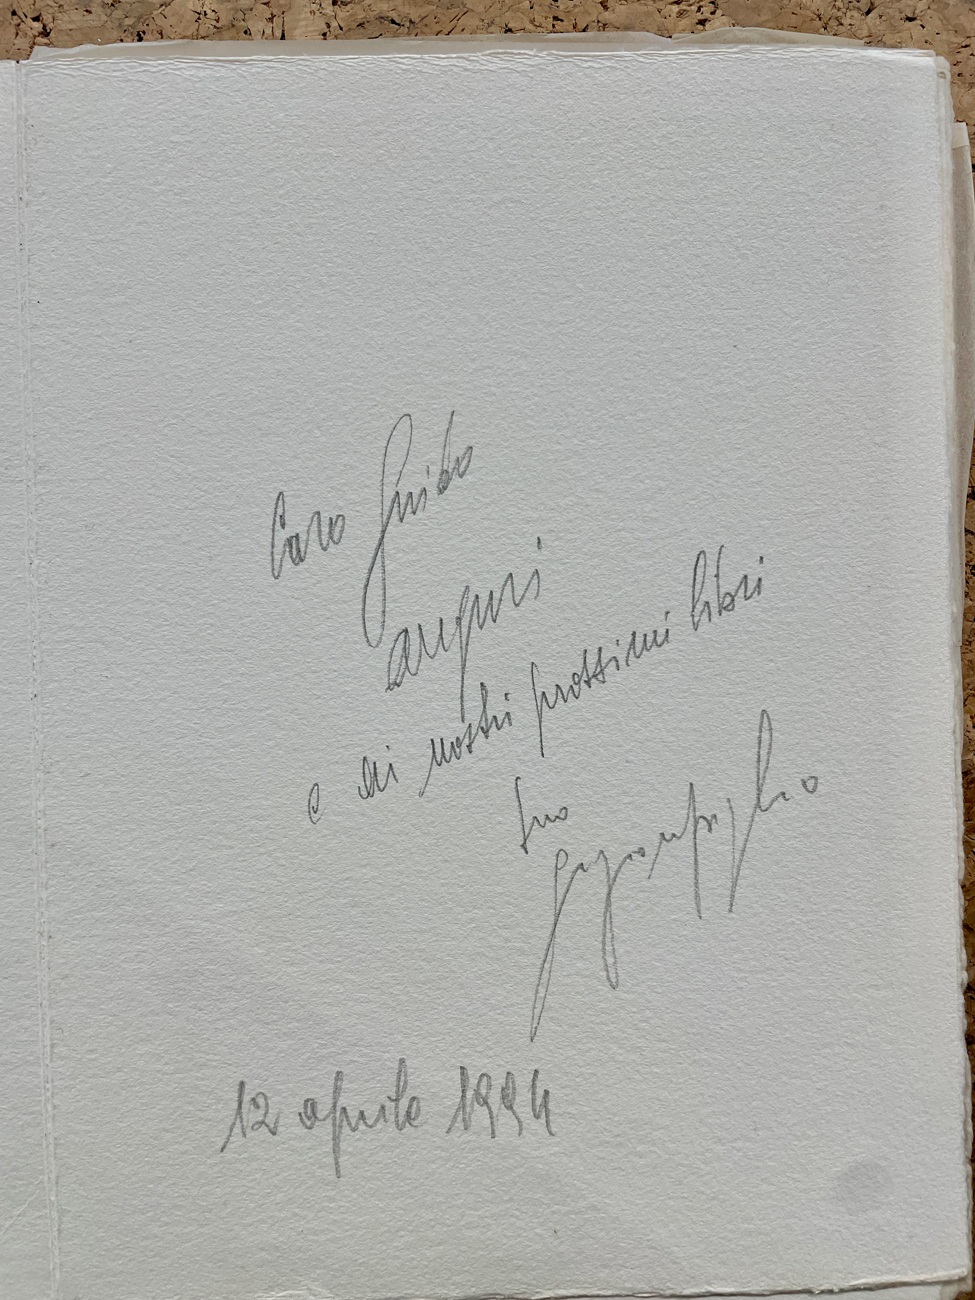 Caro Guido
auguri
e ai nostri prossimi libri
tuo
12 aprile 1994